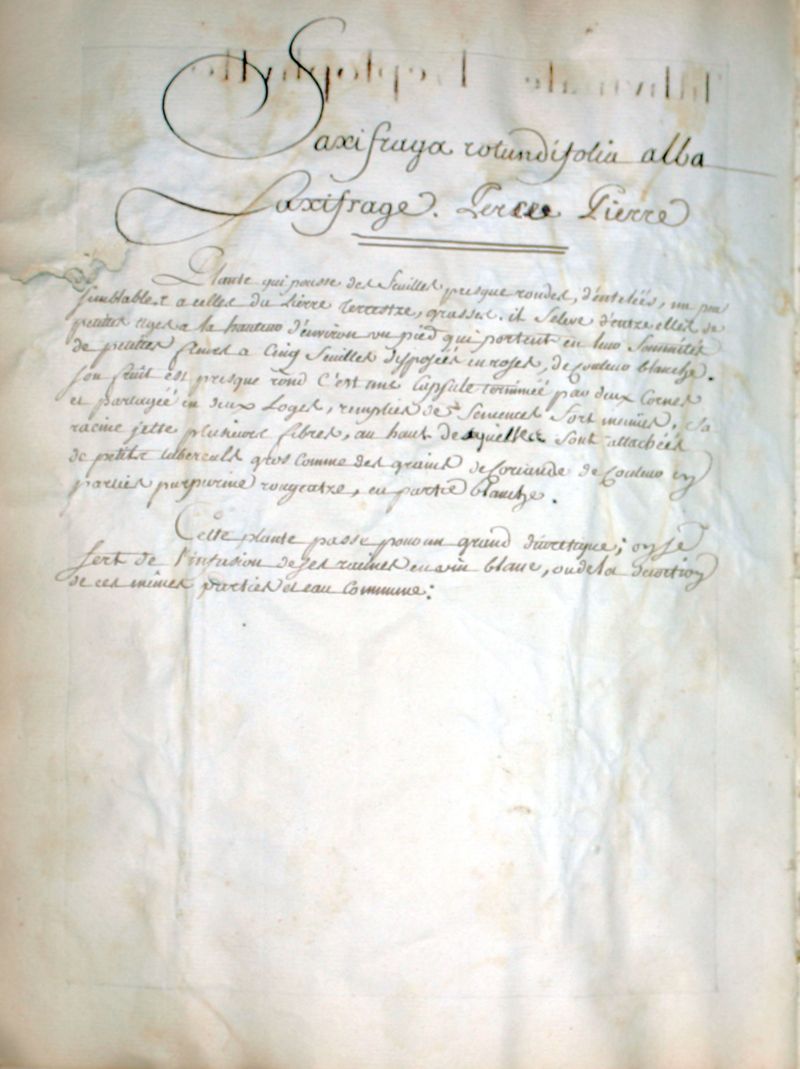 Saxifraga rotundifolia alba
Saxifrage. Perce Pierre
Plante qui pousse des feuilles presque rondes, d'entelées, un peu
semblables a celles du Lierre Terrestre, grasses. il seleve d'entre elles de
petittes tiges a la hauteur d'environ un pied qui portent en leur Sommités
de petittes fleurs a Cinq feuilles dispposées en roses, de Couleur blanche.
son fruit est presque rond C'est une Capsule terminéé par deux Cornes
et partagéé en deux Loges, remplies de Semences fort menues, sa
racine jette plusieurs fibres, au haut desquelles sont attachées
de petits tubercules gros comme des grains de Coriande de Couleur en
parties purpurine rougeatre, en partie blanche.
Cette plante passe pour un grand diuretique; on se
sert de l'infusion de ses racines en vin blanc, ou de la decoction
de ces mêmes parties et eau Commune:
Tithymale Leptophylle